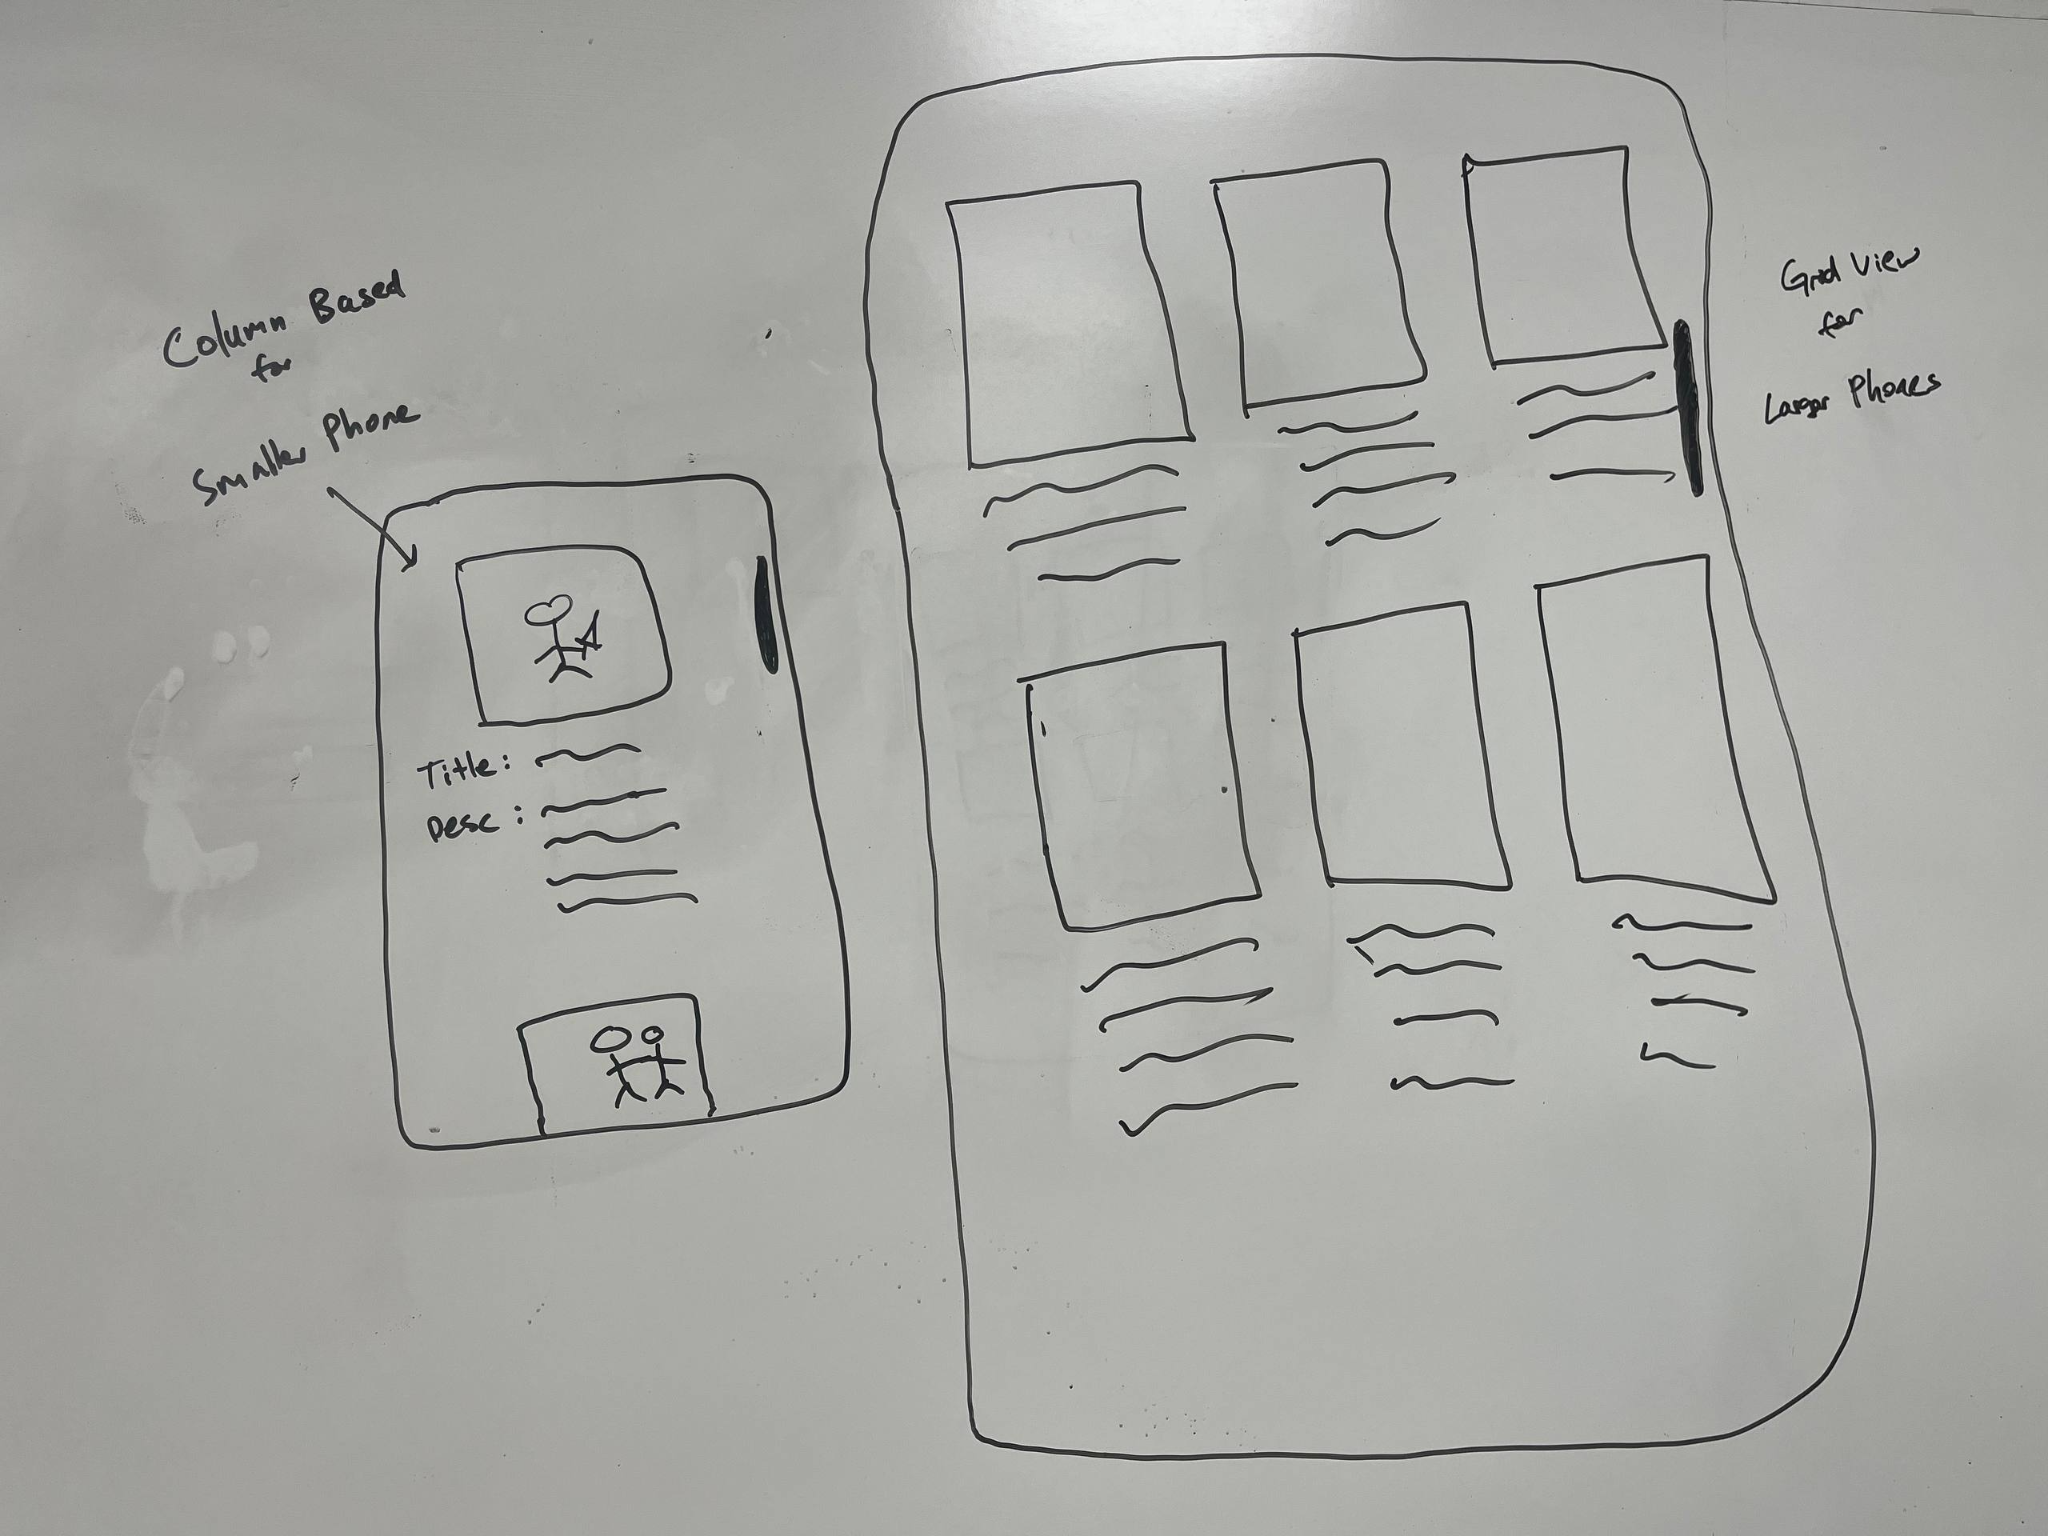 Column Based
for
Smaller Phone
Title:
Desc :
Grid View
for
Larger Phones